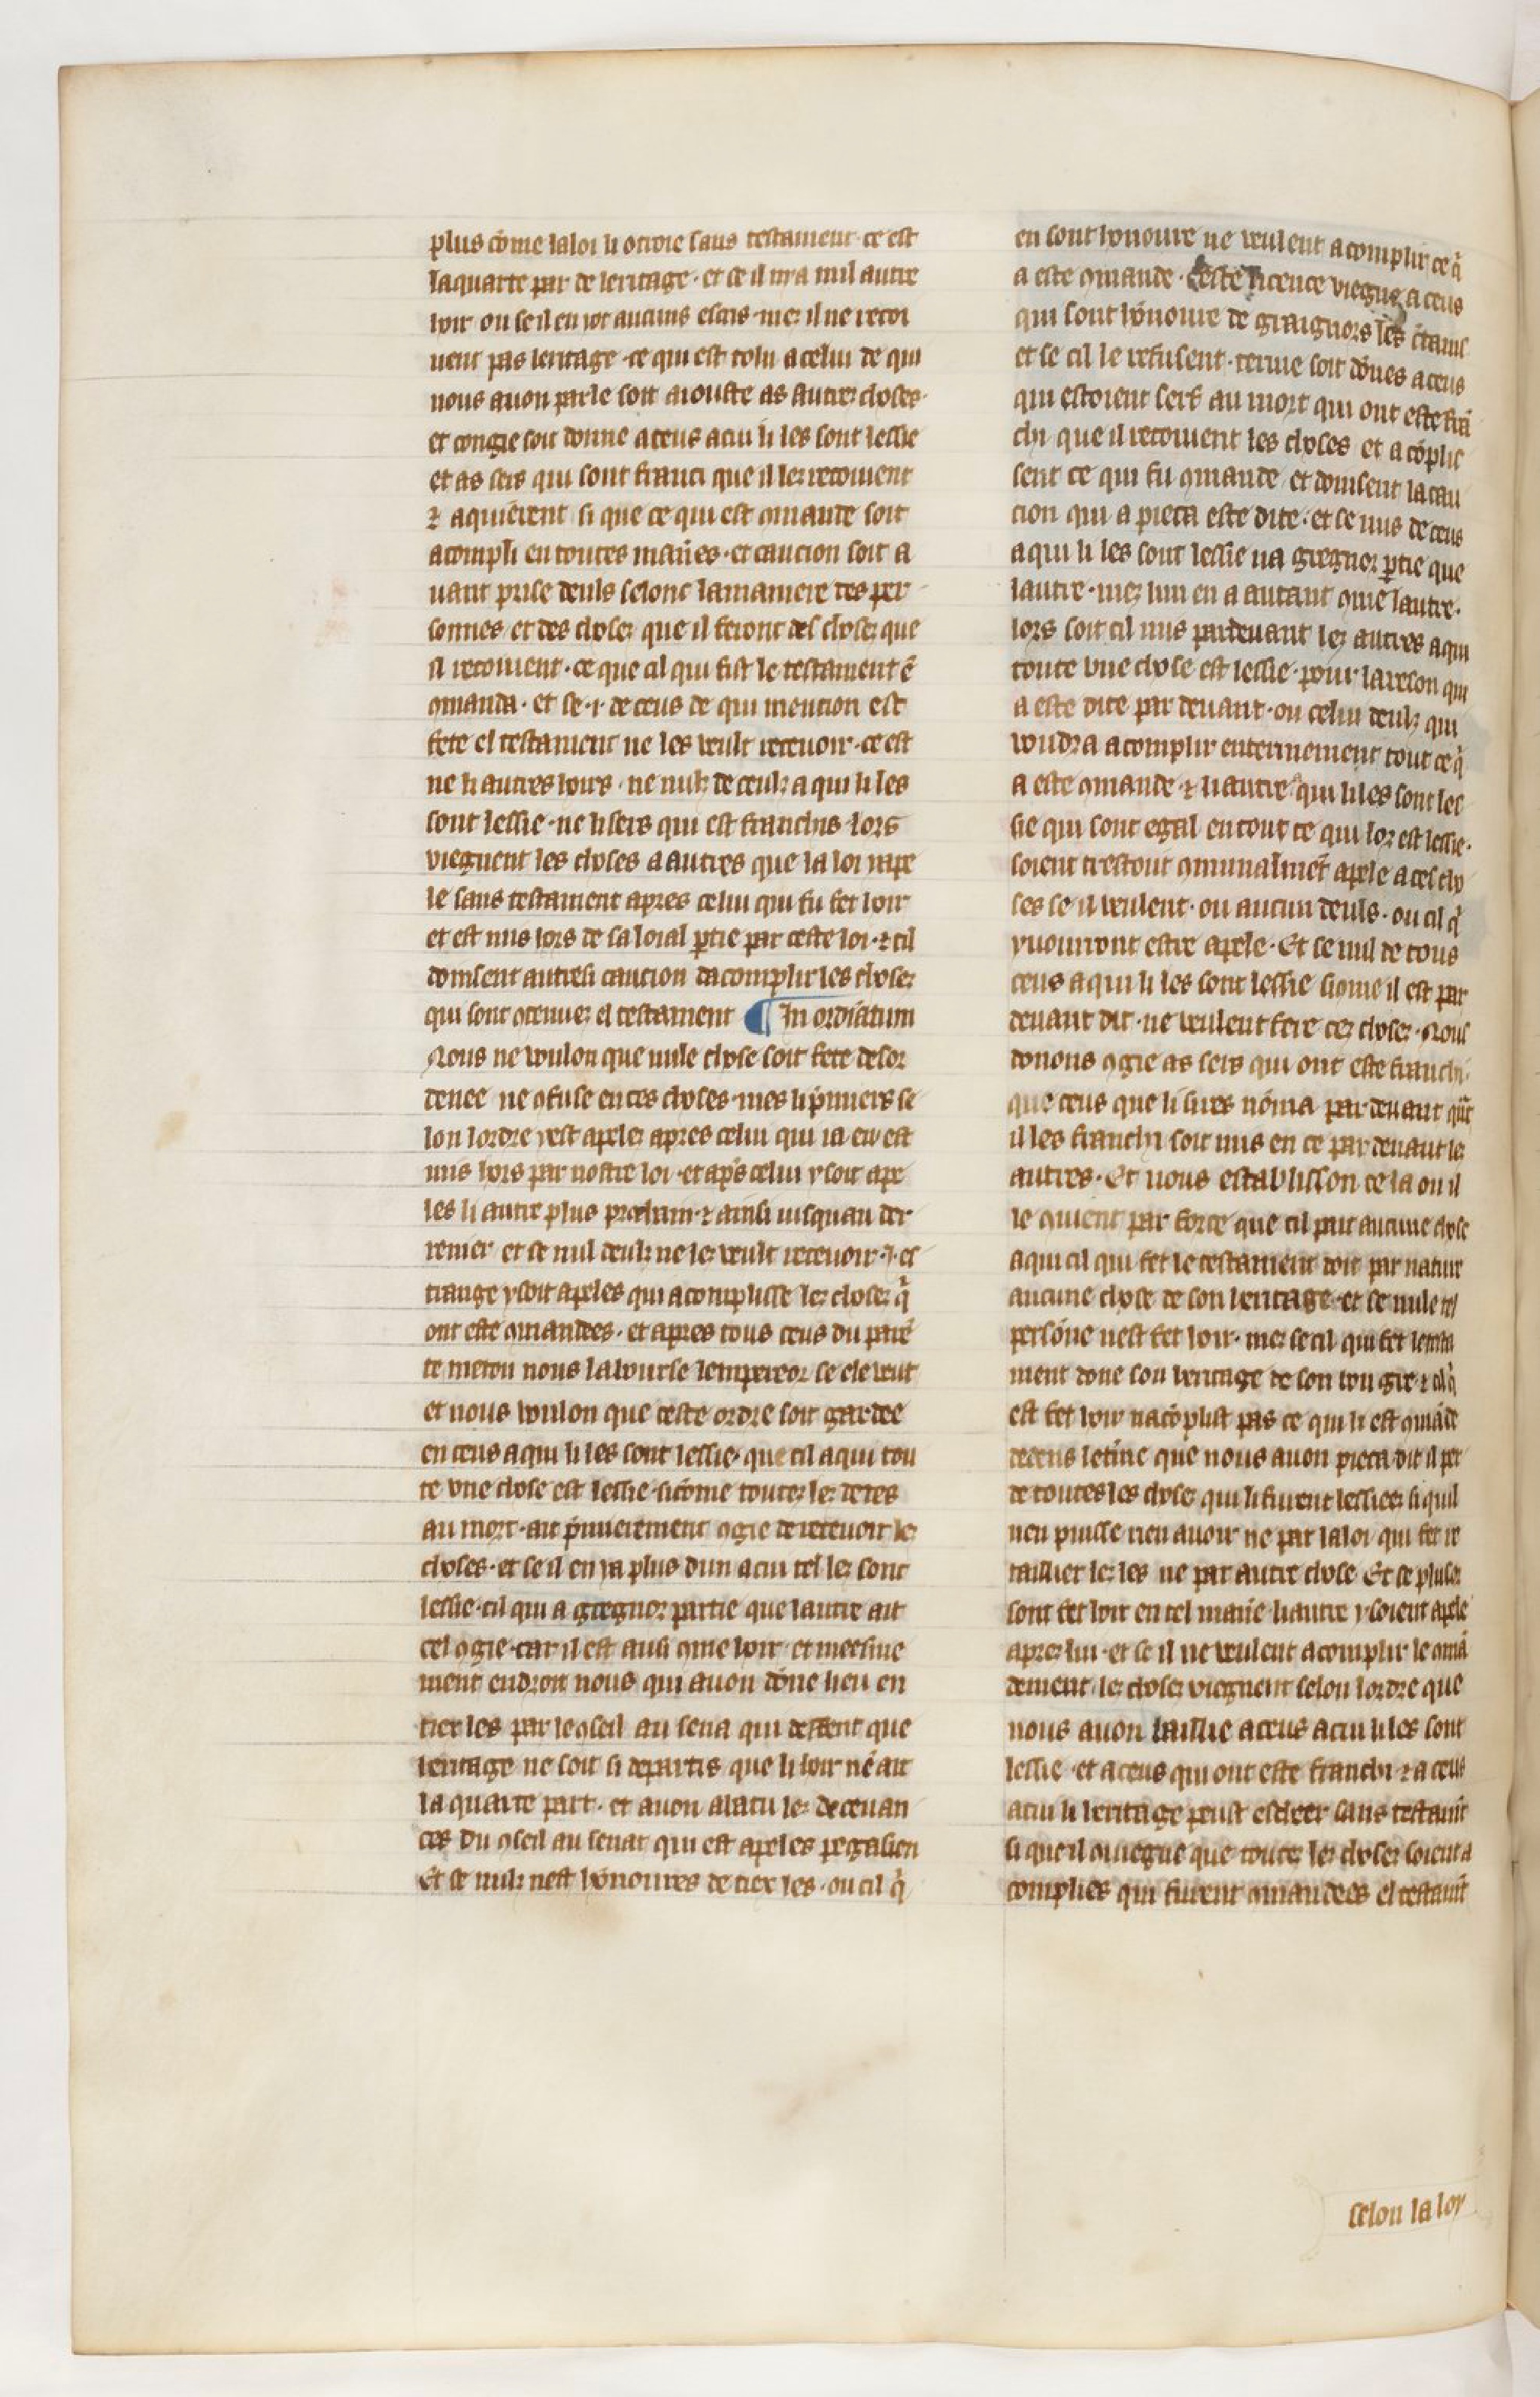 plus cōme la loi li otroie sans testament. ce est
la quarte par de leritage. et se il ni a nul autre
hoir ou se il en iot aucuns escris mez il ne recoi
uent pas leritage. ce qui est tolu a celui de qui
nous auon parle soit aiouste as autrez choses.
et congie soit donne a ceus a cui li les sont lessie
et as sers qui sont franci que il lez recoiuent
⁊ aquierent si que ce qui est ꝯmande soit
acompli en toutes manẽs. et caucion soit a
uant prise deuls selonc la maniere des per
sonnes et des chosez que il feront des chosez que
il recoiuent. ce que cil qui fist le testament ē
ꝯmanda. et se .i. de ceus de qui mention est
fete el testament ne les veult receuoir. ce est
ne li autres hoirs. ne nulz de ceulz a qui li les
sont lessie. ne li sers qui est franchis. lors
viegnent les choses a autres que la loi rape
le sans testament apres celui qui fu fet hoir
et est mis hors de sa loial ꝑtie par ceste loi. ⁊ cil
doinsent autresi caucion dacomplir les chosez
qui sont ꝯtenuez el testament ¶ In ordinatum
Nous ne voulon que nule chose soit fete desor
denee ne ꝯfuse en ces choses. mes li p̄miers se
lon lordre i est apelez apres celui qui ia en est
mis hors par nostre loi. et ap̄s celui y soit ape
les li autre plus prochain. ⁊ ainsi iusquau der
renier et se nul deulz ne lez veult receuoir .i. es
trange y soit apeles qui acomplisse lez chosez q̄
ont este ꝯmandees. et apres tous ceus du parē
te meton nous la bourse lempereor se ele veut
et nous voulon que ceste ordre soit gardee
en ceus a qui li les sont lessie. que cil a qui tou
te vne chose est lessie. sicōme toutez lez detes
au mort. ait p̄mierement ꝯgie de receuoir lez
choses. et se il en ia plus dun a cui tel lez sont
lessie. cil qui a gregnor partie que lautre ait
cel ꝯgie. car il est ausi ꝯme hoir et meesme
ment endroit nous qui auon dōne lieu en
tier les par le ꝯseil au sena qui deffent que
leritage ne soit si departis que li hoir nē ait
la quarte part. et auon abatu lez deceuan
ces du ꝯseil au senat qui est apeles pegasien
Et se nulz nest hōnoures de tiex les. ou cil q̄
en sont honoure ne veulent acomplir ce q̄
a este ꝯmande. Ceste licence viegne a ceus
qui sont hōnoure de graignors les
et se cil le refusent. terme soit dōnes a ceus
qui estoient serf au mort qui ont este frā
chi que il recoiuent les choses et acōplis
sent ce qui fu ꝯmande et doinsent la cau
cion qui a pieca este dite. et se nus de ceus
a qui li les sont lessie na gregnor ꝑtie que
lautre. mez lun en a autant ꝯme lautre.
lors soit cil mis par deuant lez autres a qui
toute vne chose est lessie. pour la reson qui
a este dite par deuant. ou celui deulz qui
voudra acomplir enterinement tout ce q̄
a este ꝯmande. ⁊ li autre a qui li les sont les
sie qui sont egal en tout ce qui lor est lessie.
soient trestout ꝯmunalmēt apele a ces cho
ses se il veulent. ou aucun deuls. ou cil q̄
y uouront estre apele. Et se nul de tous
ceus a qui li les sont lessie sicome il est par
deuant dit. ne veulent fere cez chosez. Nous
donons ꝯgie as sers qui ont este franchi.
que ceus que li sires nōma par deuant q̄nt
il les franchi soit mis en ce par deuant lez
autres. Et nous establisson de la ou il
le ꝯuient par force que cil part aucune chose
a qui cil qui fet le testament doit par nature
aucune chose de son leritage. et se nule tel
persōne nest fet hoir. mez se cil qui fet le testa
ment done son heritage de son bon gre. ⁊ cil q̄
est fet hoir nacōplist pas ce qui li est ꝯmāde
dedens le t̄me que nous auon pieca dit il per
de toutes les chosez qui li furent lessiees si quil
nen puisse rien auoir ne par la loi qui fet re
taillier lez les ne par autre chose Et se plusor
sont fet hoir en tel manẽ li autre y soient apele
aprez lui. et se il ne veulent acomplir le ꝯmā
dement. lez chosez viegnent selon lordre que
nous auon baillie a ceus a cui li les sont
lessie. et a ceus qui ont este franchi ⁊ a ceus
a cui li heritage peust escheer sans testamt̄
si que il ꝯuiegne que toutez lez chosez soient a
complies qui furent ꝯmandees el testamt̄
selon la loy